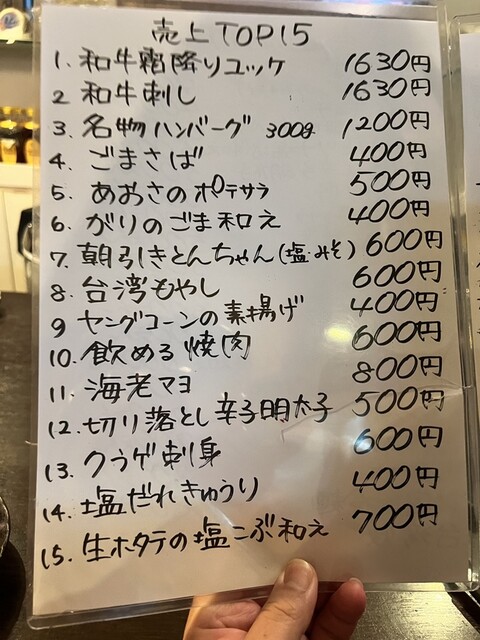 売上TOP15
1. 和牛霜降りユッケ 1630円
2 和牛刺し 1630円
3. 名物ハンバーグ 300g 1200円
4. ごまさば 400円
5. あおさのポテサラ 500円
6. がりのごま和え 400円
7. 朝引きとんちゃん(塩・みそ) 600円
8. 台湾もやし 600円
9 ヤングコーンの素揚げ 400円
10. 飲める焼肉 600円
11. 海老マヨ 800円
12. 切り落とし辛子明太子 500円
13. クラゲ刺身 600円
14. 塩だれきゅうり 400円
15. 生ホタテの塩こぶ和え 700円